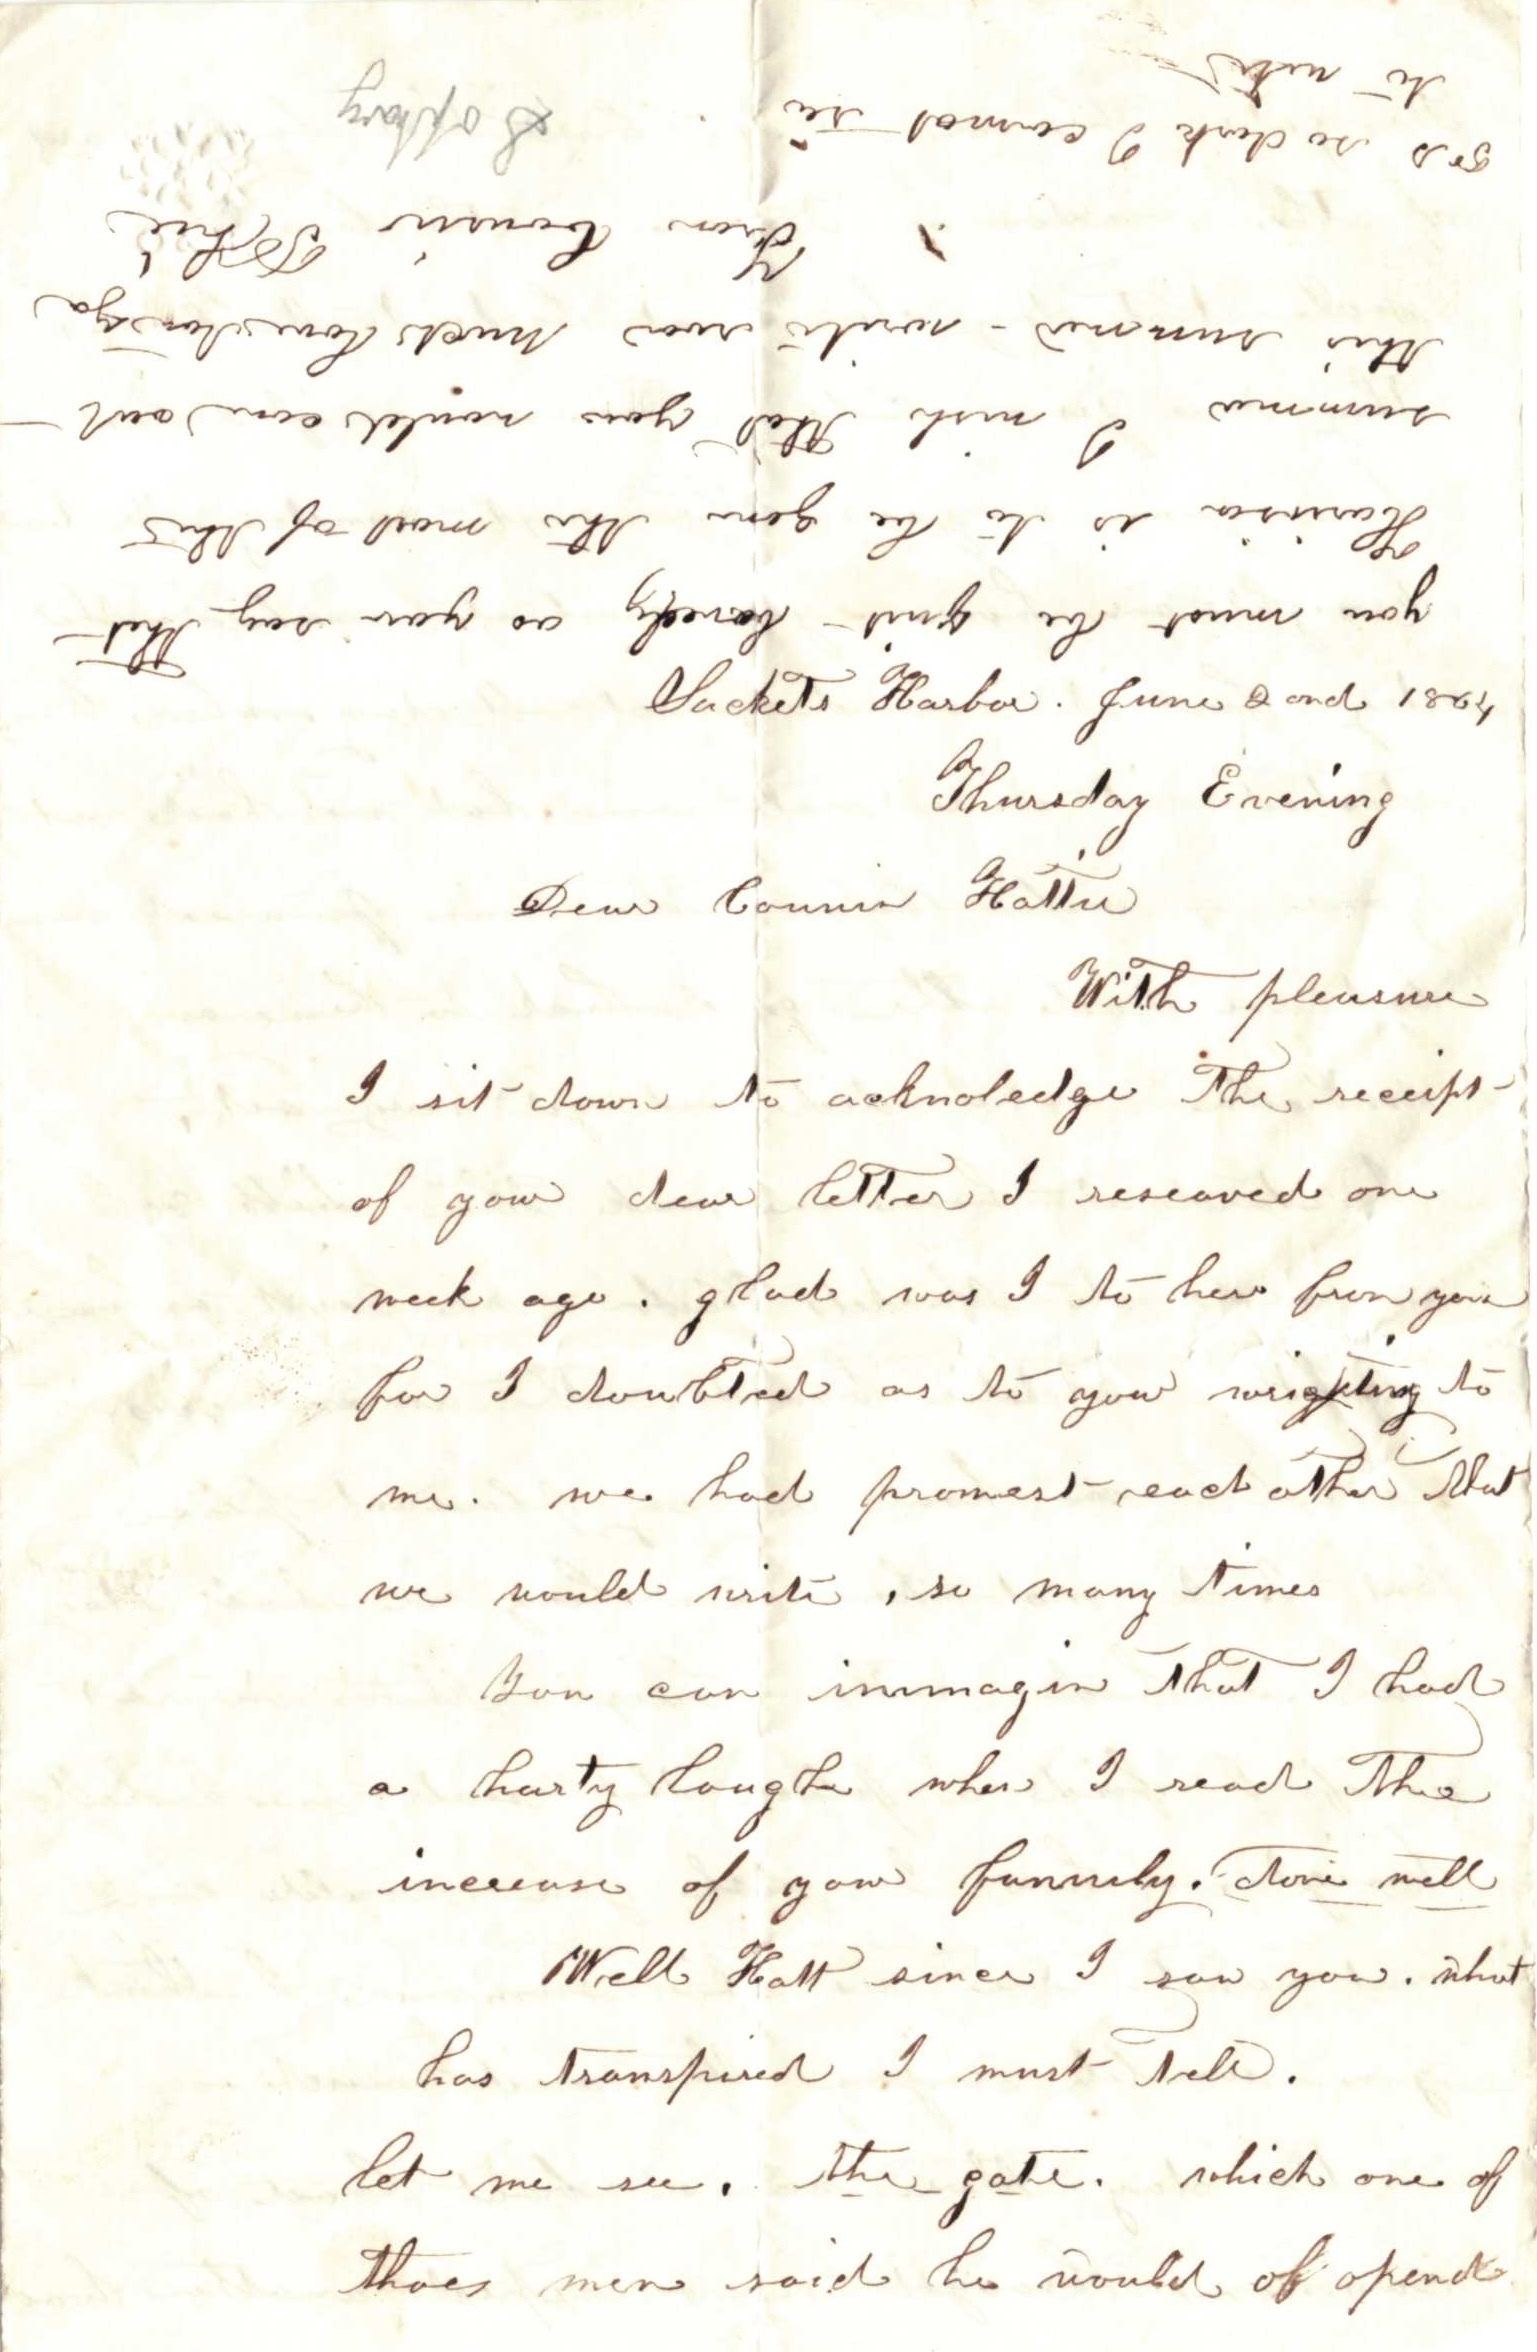 Sackets Harbor. June 2 ond
Thursday Evening
Dear Cousin Hattie
With pleasure
I sit down to acknoledge the receipt
of your dear letter I reseaved one
week ago. glad was I to hear from you
for I doubted as to your wrighting to
me. we had promest each other that
we would write, so many times
You can immagin that I had
a harty laugh when I read the
increase of your family. done well
Well Hatt since I saw you. what
has transpired I must tell.
let me see. the gate. which one of
thoes men said he would of opend
you must be quit lonely as you say that
is to be gone the most of the
summer I wish that you would com out
this summer - write soon much love to
From Cousin Sophie
so dark I cannot see
to write